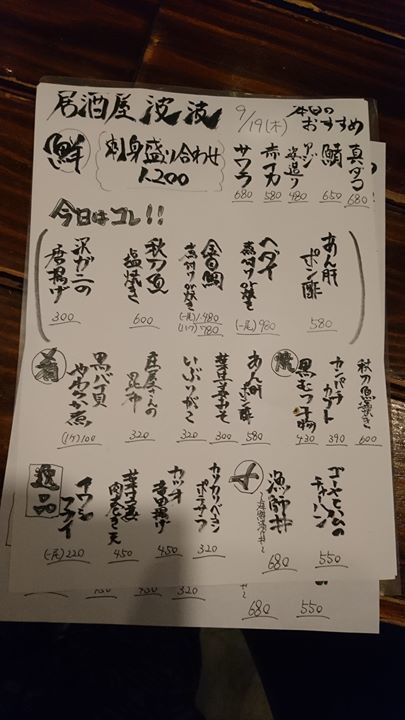 居酒屋 波波
9/19(木)
本日のおすすめ
鮮
刺身盛り合わせ
1,200
真ダコ 680
鯖 650
アジ姿造り 480
赤イカ 580
サワラ 680
今日はコレ!!
あん肝ポン酢 580
ヘダイ煮付け or 焼き (一尾)980
金目鯛煮付け or 焼き (一尾)1,480 (ハーフ)780
秋刀魚塩焼き 600
沢ガニの唐揚げ 300
秋刀魚焼き 600
カンパチカブト 390
黒むつ干物 430
焼
あん肝ポン酢 580
300
いぶりがっこ 320
庄屋さんの昆布 320
黒バイ貝やわらか煮 (1ヶ)100
肴
ゴーヤとハムのチャーハン 550
漁師丼 680
〆
カリカリベーコンポテサラ 320
カツオ竜田揚げ 450
肉巻き天 450
イワシフライ (一尾)220
逸品
680
550